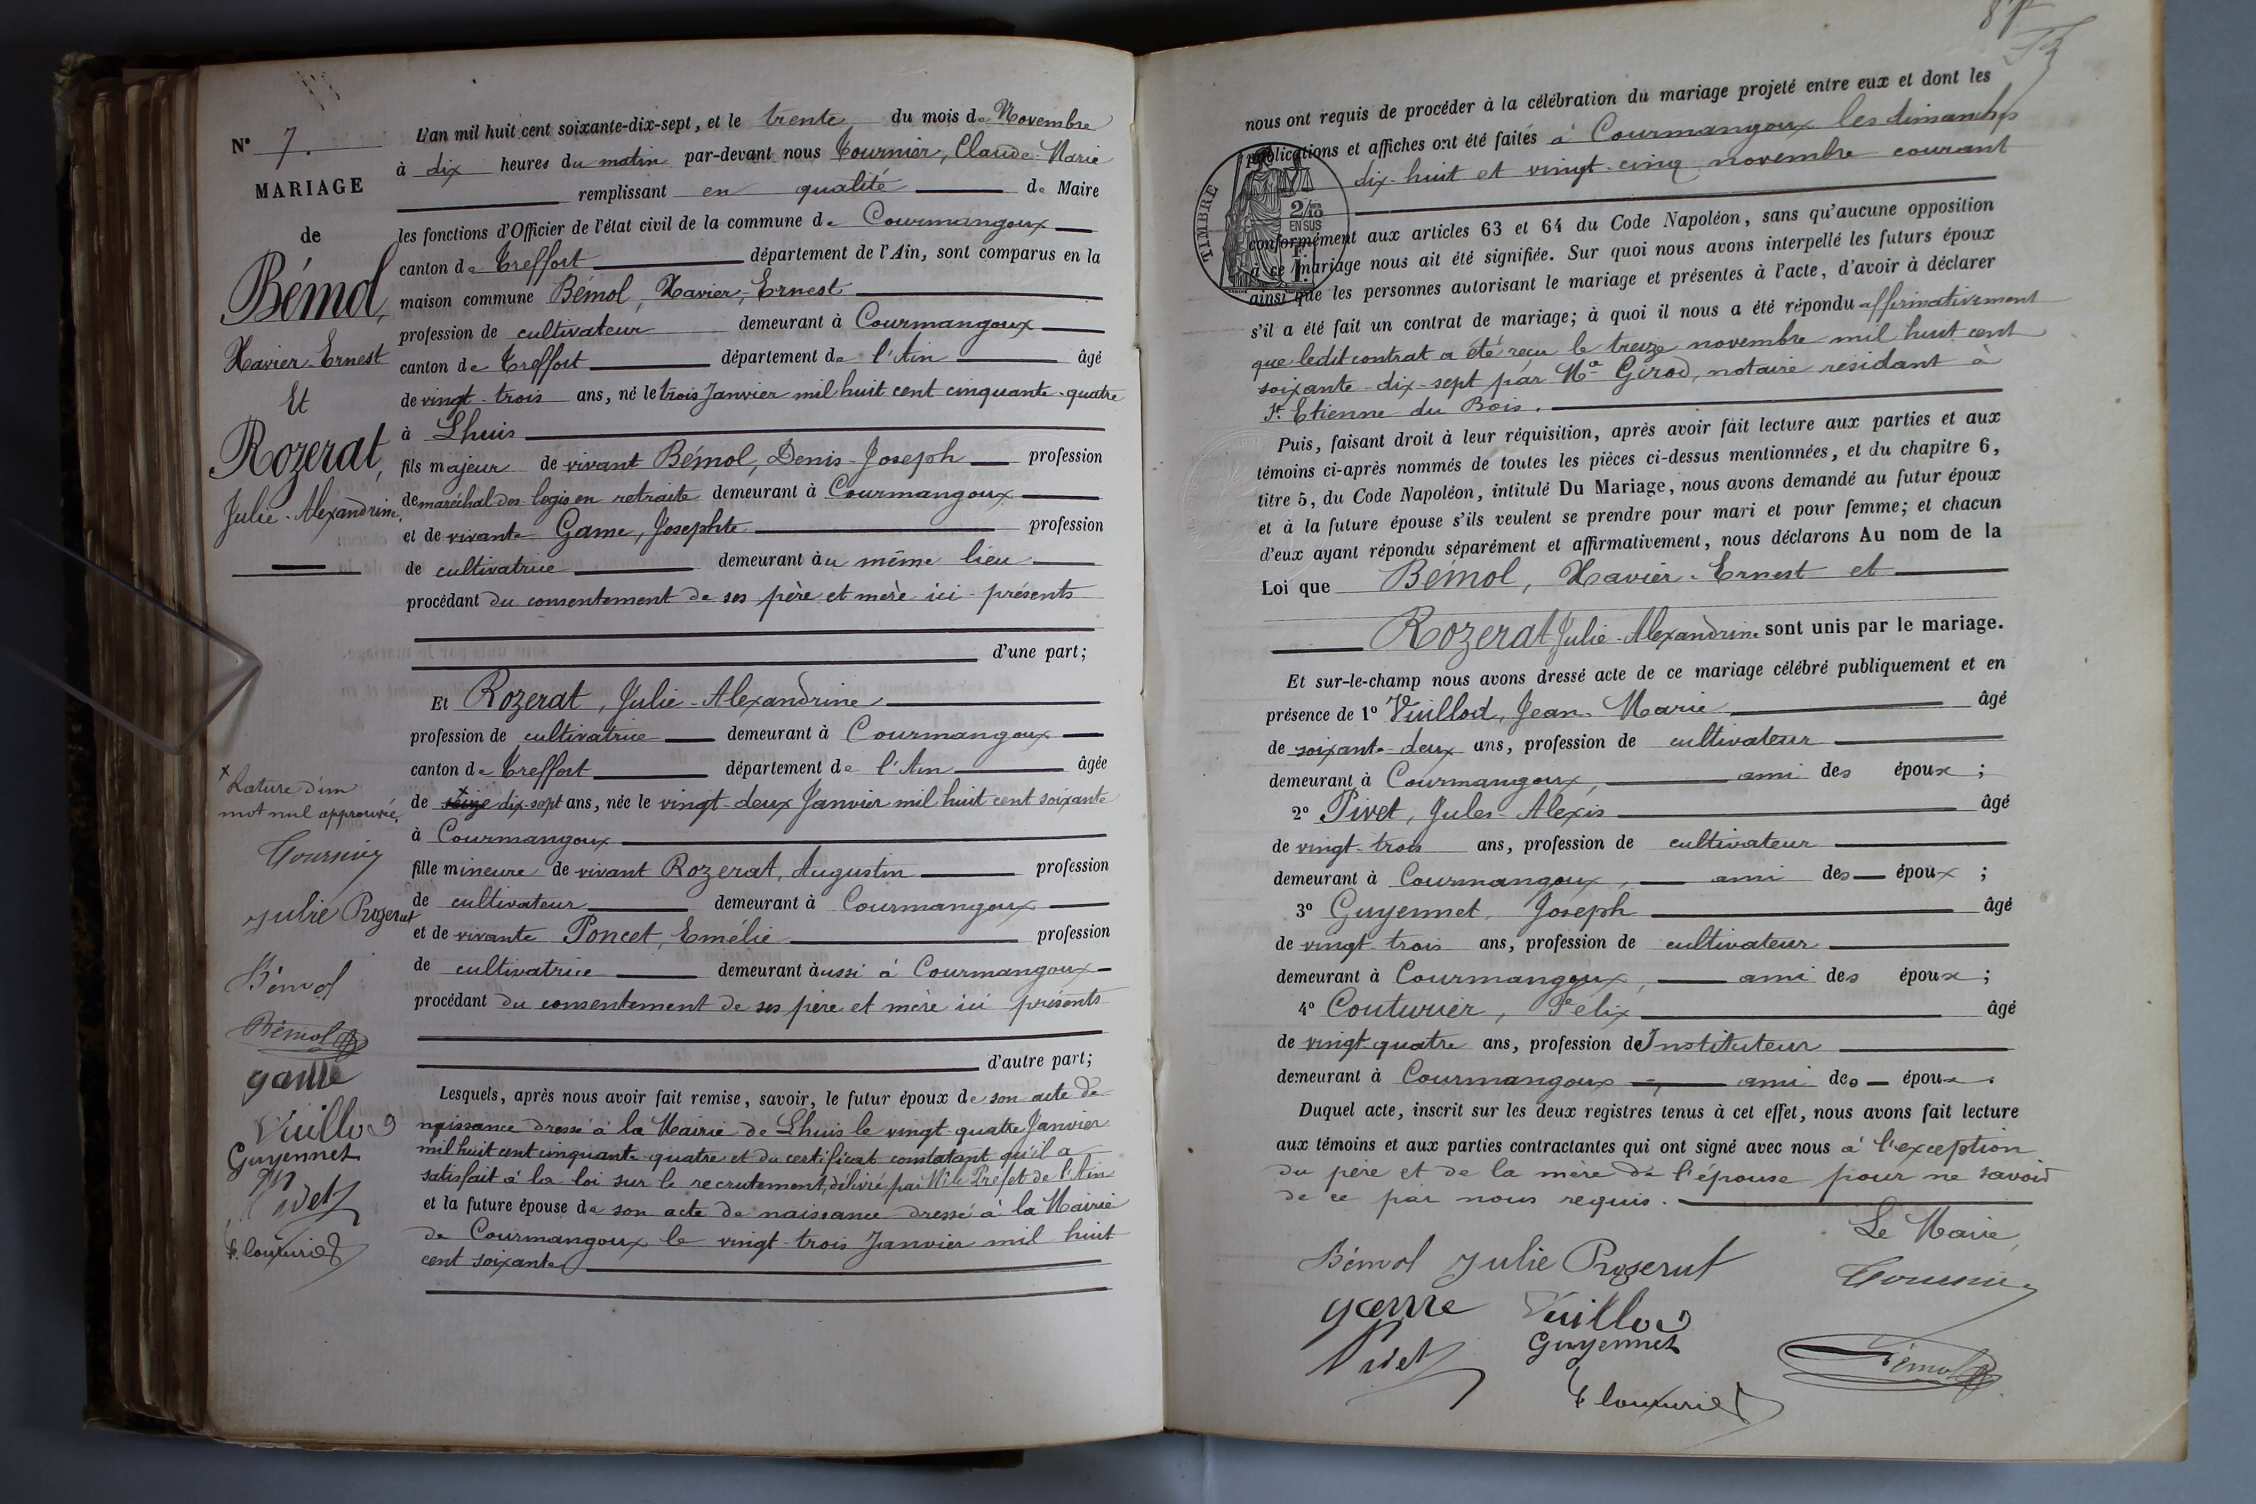 Nº 7.
MARIAGE
de
Bémol,
Xavier-Ernest
Et
Rozerat,
Julie-Alexandrine.
L'an mil huit cent soixante-dix-sept, et le trente du mois de Novembre
à dix heures du matin par-devant nous Tournier, Claude-Marie
remplissant en qualité de Maire
les fonctions d'Officier de l'état civil de la commune de Courmangoux
canton de Treffort département de l'Ain, sont comparus en la
maison commune Bémol, Xavier-Ernest
profession de cultivateur demeurant à Courmangoux
canton de Treffort département de l'Ain âgé
de vingt-trois ans, né le trois Janvier mil huit cent cinquante-quatre
à Lhuis
fils majeur de vivant Bémol, Denis-Joseph profession
de maréchal des logis en retraite demeurant à Courmangoux
et de vivante Game, Josephte profession
de cultivatrice demeurant au même lieu
procédant du consentement de ses père et mère ici présents
d'une part;
Et Rozerat, Julie-Alexandrine
profession de cultivatrice demeurant à Courmangoux
canton de Treffort département de l'Ain âgée
de seize dix-sept ans, née le vingt-deux Janvier mil huit cent soixante
à Courmangoux
fille mineure de vivant Rozerat, Augustin profession
de cultivateur demeurant à Courmangoux
et de vivante Poncet, Emélie profession
de cultivatrice demeurant aussi à Courmangoux
procédant du consentement de ses père et mère ici présents
d'autre part;
Lesquels, après nous avoir fait remise, savoir, le futur époux de son acte de
naissance dressé à la Mairie de Lhuis le vingt-quatre Janvier
mil huit cent cinquante-quatre et du certificat constatant qu'il a
satisfait à la loi sur le recrutement, délivré par Mr le Préfet de l'Ain
et la future épouse de son acte de naissance dressé à la Mairie
de Courmangoux le vingt-trois Janvier mil huit
cent soixante
x Rature d'un
mot nul approuvée.
Tournier
Julie Rozerat
Bémol
Bémol
game
Vuillod
Guyennet
Pivet
F. Couturier
nous ont requis de procéder à la célébration du mariage projeté entre eux et dont les
publications et affiches ont été faites à Courmangoux les dimanches
dix-huit et vingt-cinq novembre courant
TIMBRE
2/10
EN SUS
conformément aux articles 63 et 64 du Code Napoléon, sans qu'aucune opposition
à ce mariage nous ait été signifiée. Sur quoi nous avons interpellé les futurs époux
ainsi que les personnes autorisant le mariage et présentes à l'acte, d'avoir à déclarer
s'il a été fait un contrat de mariage; à quoi il nous a été répondu affirmativement
que ledit contrat a été reçu le treize novembre mil huit cent
soixante-dix-sept par Me Girod, notaire résidant à
St. Etienne du Bois.
Puis, faisant droit à leur réquisition, après avoir fait lecture aux parties et aux
témoins ci-après nommés de toutes les pièces ci-dessus mentionnées, et du chapitre 6,
titre 5, du Code Napoléon, intitulé Du Mariage, nous avons demandé au futur époux
et à la future épouse s'ils veulent se prendre pour mari et pour femme; et chacun
d'eux ayant répondu séparément et affirmativement, nous déclarons Au nom de la
Loi que Bémol, Xavier-Ernest et
Rozerat Julie-Alexandrine sont unis par le mariage.
Et sur-le-champ nous avons dressé acte de ce mariage célébré publiquement et en
présence de 1º Vuillod, Jean-Marie âgé
de soixante-deux ans, profession de cultivateur
demeurant à Courmangoux, ami des époux;
2º Pivet, Jules-Alexis âgé
de vingt-trois ans, profession de cultivateur
demeurant à Courmangoux, ami des époux;
3º Guyennet, Joseph âgé
de vingt-trois ans, profession de cultivateur
demeurant à Courmangoux, ami des époux;
4º Couturier, Félix âgé
de vingt-quatre ans, profession de Instituteur
demeurant à Courmangoux, ami des époux.
Duquel acte, inscrit sur les deux registres tenus à cet effet, nous avons fait lecture
aux témoins et aux parties contractantes qui ont signé avec nous à l'exception
du père et de la mère de l'épouse pour ne savoir
de ce par nous requis.
Le Maire,
Bémol Julie Rozerat Tournier
game Vuillod
Pivet Guyennet Bémol
F. Couturier